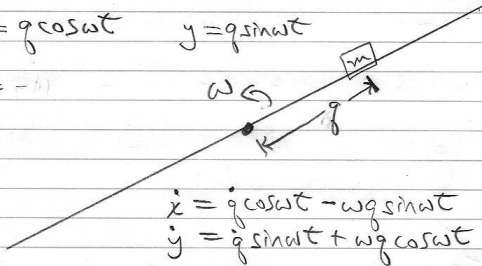 = q cosωt y = q sinωt
= -
m
ω
q
ẋ = q̇ cosωt - ωq sinωt
ẏ = q̇ sinωt + ωq cosωt